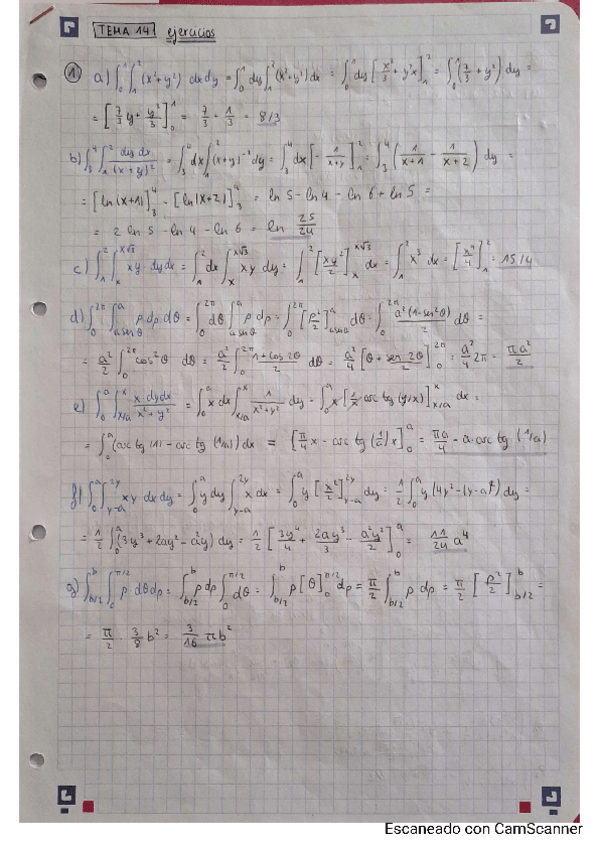 TEMA 14 ejercicios
① a) ∫₀¹∫₁² (x²+y²) dxdy = ∫₀¹ dy ∫₁² (x²+y²) dx = ∫₀¹ dy [x³/3 + y²x]₁² = ∫₀¹ (7/3 + y²) dy =
= [7/3 y + y³/3]₀¹ = 7/3 + 1/3 = 8/3
b) ∫₃⁴∫₁² dy dx/(x+y)² = ∫₃⁴ dx ∫₁² (x+y)⁻² dy = ∫₃⁴ dx [- 1/(x+y)]₁² = ∫₃⁴ (1/(x+1) - 1/(x+2)) dy =
= [ln(x+1)]₃⁴ - [ln(x+2)]₃⁴ = ln 5 - ln 4 - ln 6 + ln 5 =
= 2 ln 5 - ln 4 - ln 6 = ln 25/24
c) ∫₁²∫ₓ^(x√3) xy dydx = ∫₁² dx ∫ₓ^(x√3) xy dy = ∫₁² [xy²/2]ₓ^(x√3) dx = ∫₁² x³ dx = [x⁴/4]₁² = 15/4
d) ∫₀^(2π)∫_(a senθ)^a ρ dρ dθ = ∫₀^(2π) dθ ∫_(a senθ)^a ρ dρ = ∫₀^(2π) [ρ²/2]_(a senθ)^a dθ = ∫₀^(2π) a²(1-sen²θ)/2 dθ =
= a²/2 ∫₀^(2π) cos²θ dθ = a²/2 ∫₀^(2π) (1+cos 2θ)/2 dθ = a²/4 [θ + sen 2θ/2]₀^(2π) = a²/4 2π = πa²/2
e) ∫₀^a∫_(x/a)^x x dydx/(x²+y²) = ∫₀^a x dx ∫_(x/a)^x 1/(x²+y²) dy = ∫₀^a x [1/x arc tg (y/x)]_(x/a)^x dx =
= ∫₀^a (arc tg (1) - arc tg (1/a)) dx = [π/4 x - arc tg (1/a) x]₀^a = πa/4 - a·arc tg (1/a)
f) ∫₀^a∫_(y-a)^(2y) xy dx dy = ∫₀^a y dy ∫_(y-a)^(2y) x dx = ∫₀^a y [x²/2]_(y-a)^(2y) dy = 1/2 ∫₀^a y (4y²-(y-a)²) dy =
= 1/2 ∫₀^a (3y³ + 2ay² - a²y) dy = 1/2 [3y⁴/4 + 2ay³/3 - a²y²/2]₀^a = 11/24 a⁴
g) ∫_(b/2)^b∫₀^(π/2) ρ dθdρ = ∫_(b/2)^b ρ dρ ∫₀^(π/2) dθ = ∫_(b/2)^b ρ [θ]₀^(π/2) dρ = π/2 ∫_(b/2)^b ρ dρ = π/2 [ρ²/2]_(b/2)^b =
= π/2 · 3/8 b² = 3/16 πb²
Escaneado con CamScanner